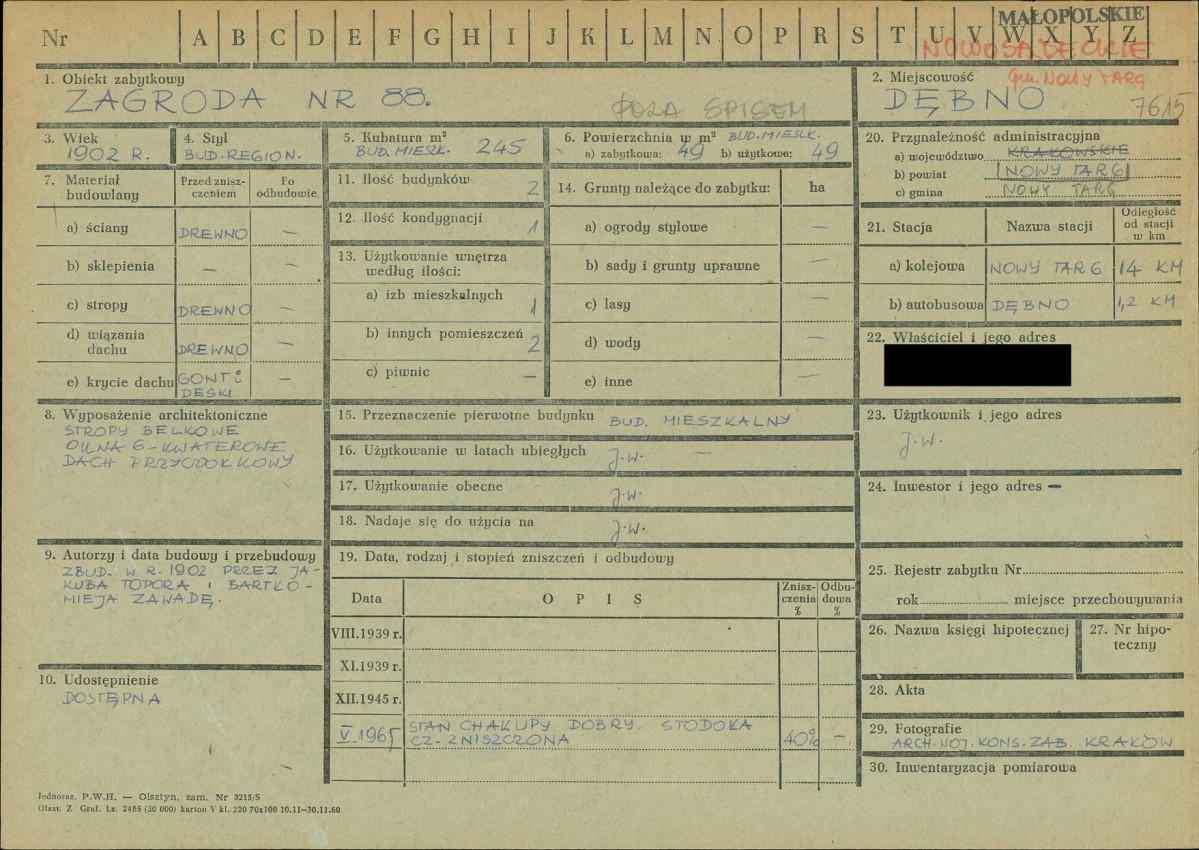 MAŁOPOLSKIE
Nr A B C D E F G H I J K L M N O P R S T U V W X Y Z
NOWOSĄDECKIE
gm. NOWY TARG
1. Obiekt zabytkowy
ZAGRODA NR 88.
POZA SPISEM
2. Miejscowość
DĘBNO
7615
3. Wiek
1902 R.
4. Styl
BUD. REGION.
5. Kubatura m³
BUD. MIESZK. 245
6. Powierzchnia w m² BUD. MIESZK.
a) zabytkowa: 49 b) użytkowa: 49
20. Przynależność administracyjna
a) województwo KRAKOWSKIE
b) powiat NOWY TARG
c) gmina NOWY TARG
7. Materiał budowlany
Przed znisz-
czeniem
Po
odbudowie
a) ściany DREWNO —
b) sklepienia — —
c) stropy DREWNO —
d) wiązania
dachu DREWNO —
e) krycie dachu GONT i
DESKI —
11. Ilość budynków 2
12. Ilość kondygnacji 1
13. Użytkowanie wnętrza
według ilości:
a) izb mieszkalnych 1
b) innych pomieszczeń 2
c) piwnic —
14. Grunty należące do zabytku: ha
a) ogrody stylowe —
b) sady i grunty uprawne —
c) lasy —
d) wody —
e) inne —
21. Stacja Nazwa stacji
Odległość
od stacji
w km
a) kolejowa NOWY TARG 14 KM
b) autobusowa DĘBNO 1,2 KM
22. Właściciel i jego adres
8. Wyposażenie architektoniczne
STROPY BELKOWE
OKNA 6-KWATEROWE
DACH PRZYCZÓŁKOWY
15. Przeznaczenie pierwotne budynku BUD. MIESZKALNY
16. Użytkowanie w latach ubiegłych J.W. —
17. Użytkowanie obecne J.W.
18. Nadaje się do użycia na J.W.
23. Użytkownik i jego adres
J.W.
24. Inwestor i jego adres —
9. Autorzy i data budowy i przebudowy
ZBUD. W R. 1902 PRZEZ JA-
KUBA TOPORA I BARTŁO-
MIEJA ZAWADĘ.
19. Data, rodzaj i stopień zniszczeń i odbudowy
Data O P I S
Znisz-
czenia
%
Odbu-
dowa
%
VIII.1939 r.
XI.1939 r.
XII.1945 r.
V.1965 STAN CHAŁUPY DOBRY. STODOŁA
CZ. ZNISZCZONA 40% —
25. Rejestr zabytku Nr
rok miejsce przechowywania
26. Nazwa księgi hipotecznej
27. Nr hipo-
teczny
10. Udostępnienie
DOSTĘPNA
28. Akta
29. Fotografie
ARCH. WOJ. KONS. ZAB. KRAKÓW
30. Inwentaryzacja pomiarowa
Jednoraz. P.W.H. — Olsztyn, zam. Nr 3215/S
Olszt. Z. Graf. Lz. 2485 (30 000) karton V kl. 220 70x100 10.11—30.11.60